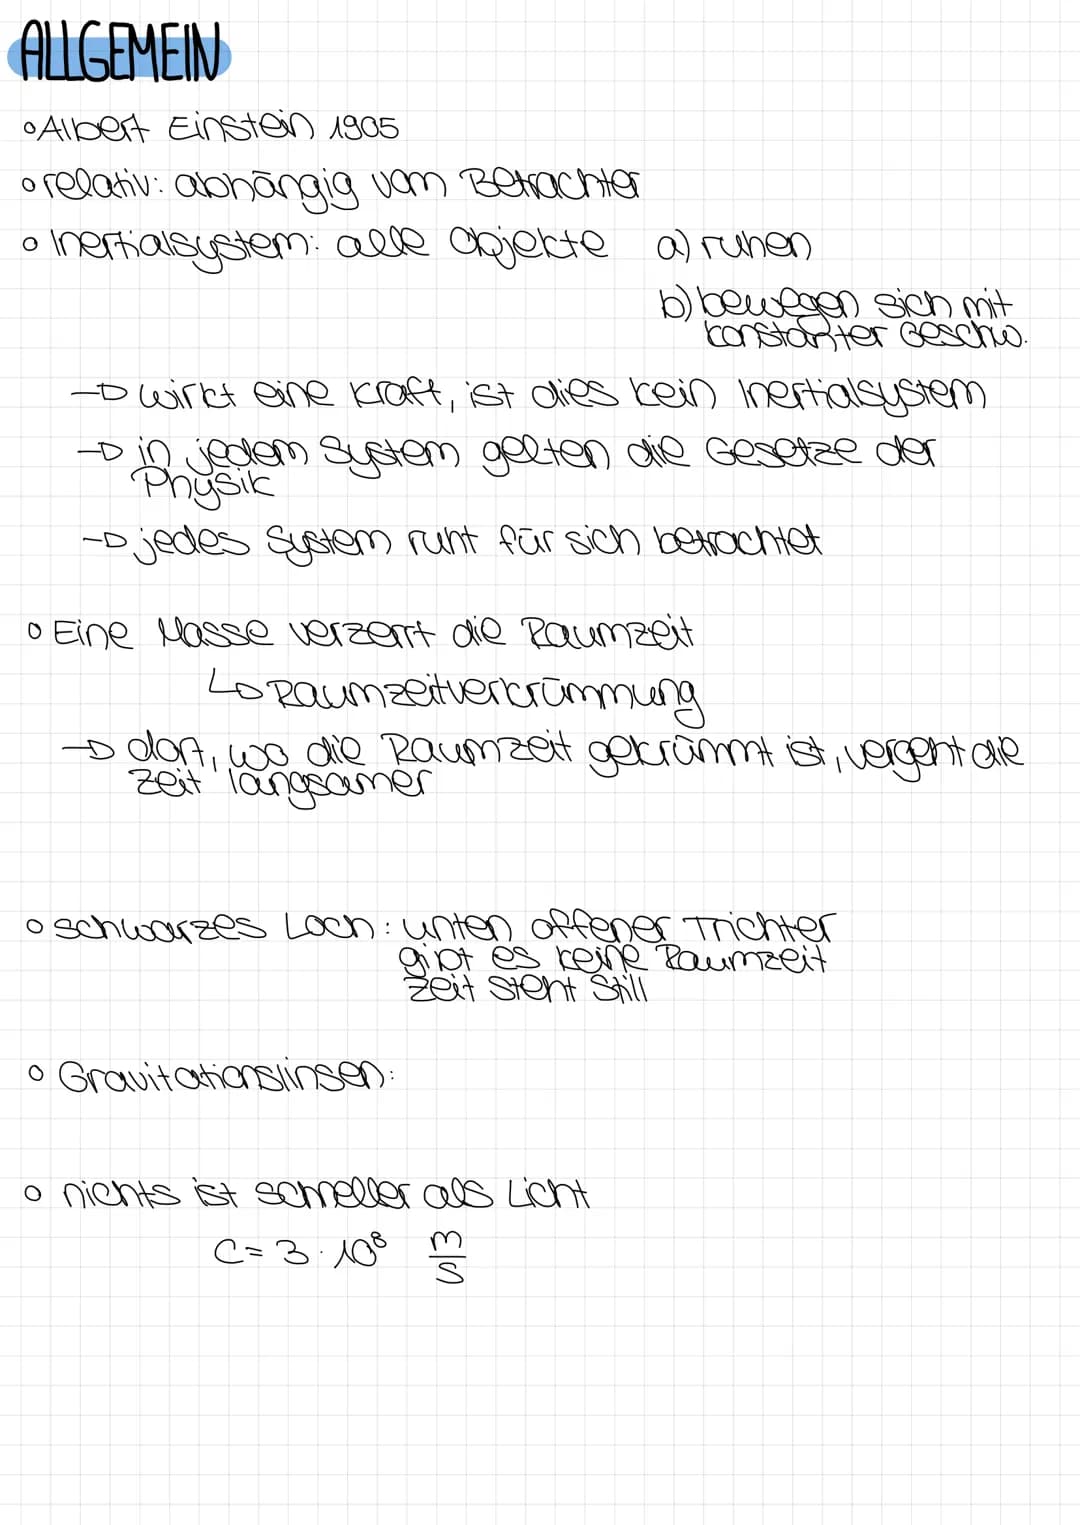 ALLGEMEIN
◦ Albert Einstein 1905
◦ relativ: abhängig vom Betrachter
◦ Inertialsystem: alle Objekte a) ruhen
b) bewegen sich mit
konstanter Geschw.
→ wirkt eine Kraft, ist dies kein Inertialsystem
→ in jedem System gelten die Gesetze der
Physik
→ jedes System ruht für sich betrachtet
◦ Eine Masse verzerrt die Raumzeit
↳ Raumzeitverkrümmung
→ dort, wo die Raumzeit gekrümmt ist, vergeht die
Zeit langsamer
◦ schwarzes Loch: unten offener Trichter
gibt es keine Raumzeit
Zeit steht still
◦ Gravitationslinsen:
◦ nichts ist schneller als Licht
C = 3 · 10⁸ m/s